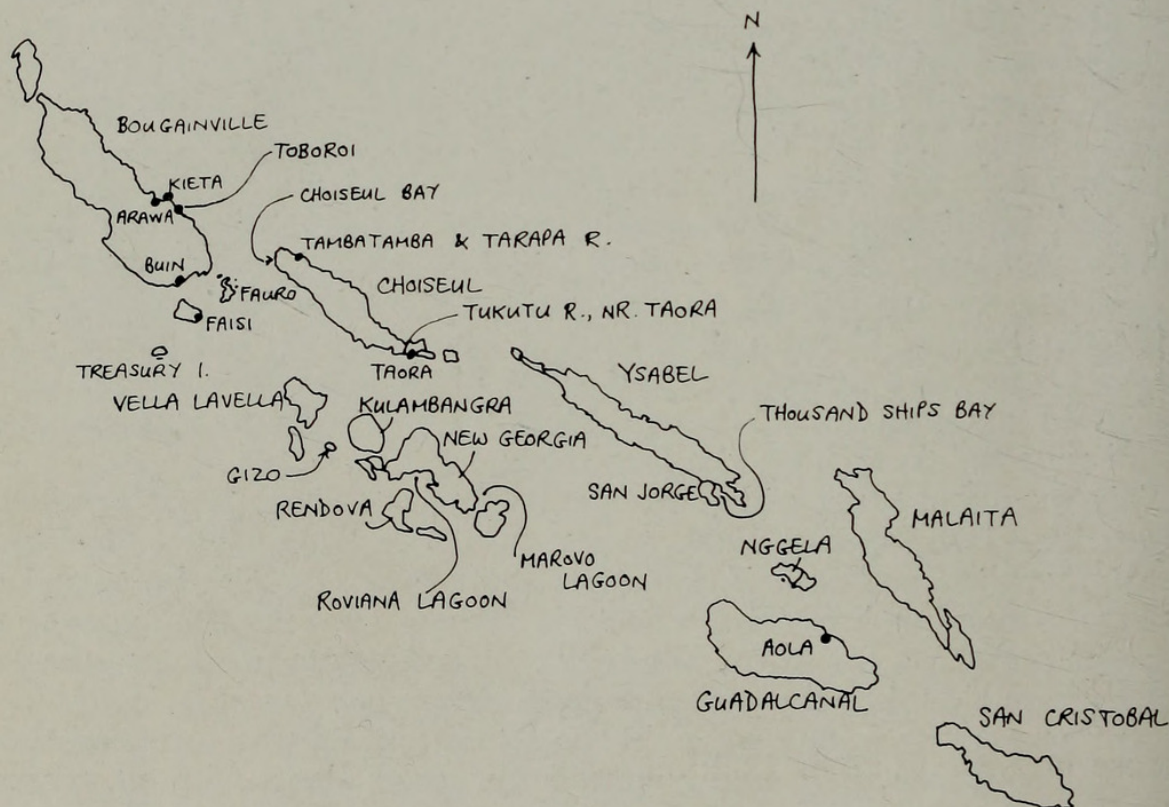 N
BOUGAINVILLE
TOBOROI
KIETA
CHOISEUL BAY
ARAWA
TAMBATAMBA & TARAPA R.
BUIN
CHOISEUL
FAURO
TUKUTU R., NR. TAORA
FAISI
TREASURY I.
TAORA
YSABEL
VELLA LAVELLA
KULAMBANGRA
THOUSAND SHIPS BAY
NEW GEORGIA
GIZO
SAN JORGE
RENDOVA
MALAITA
NGGELA
MAROVO
LAGOON
ROVIANA LAGOON
AOLA
GUADALCANAL
SAN CRISTOBAL